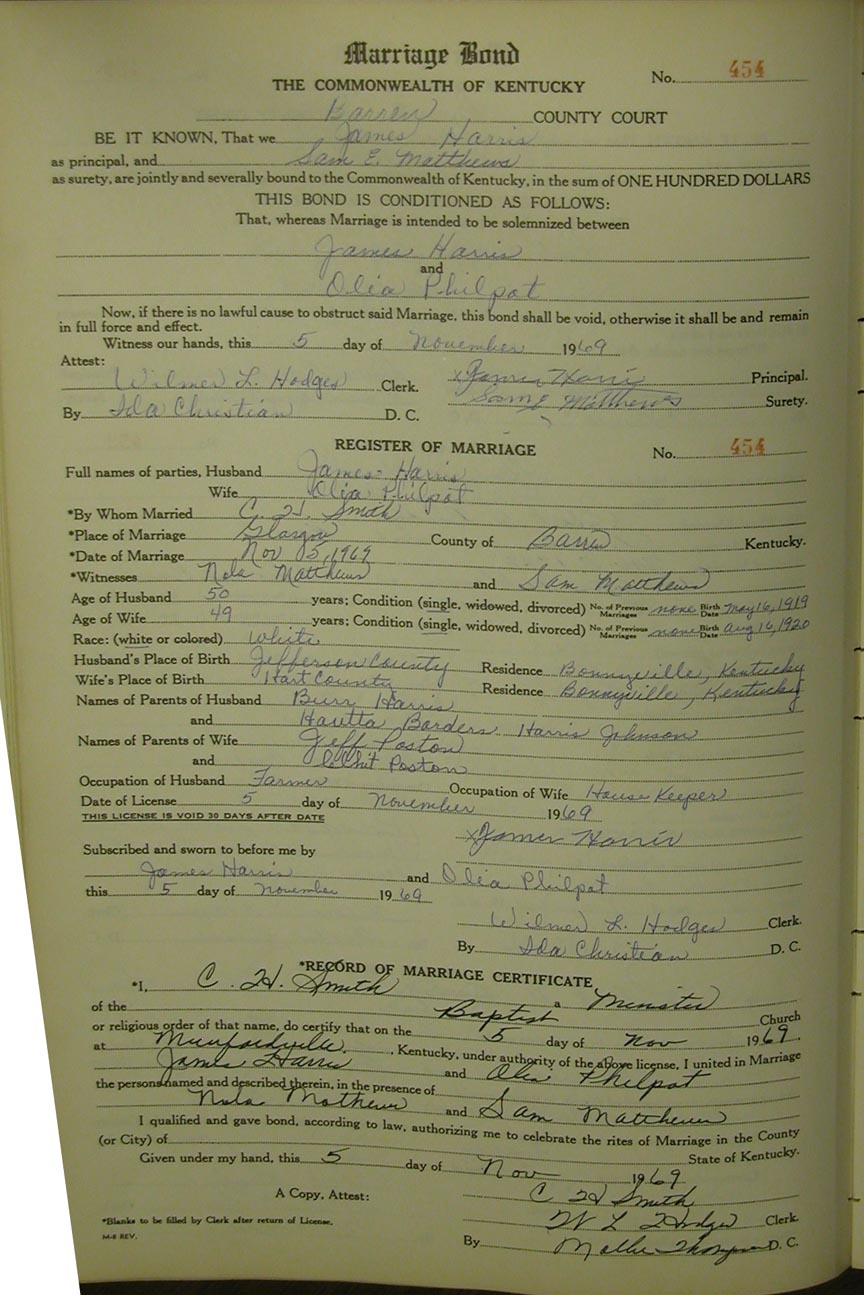 Marriage Bond
THE COMMONWEALTH OF KENTUCKY
No. 454
Barren COUNTY COURT
BE IT KNOWN, That we James Harris
as principal, and Sam E. Matthews
as surety, are jointly and severally bound to the Commonwealth of Kentucky, in the sum of ONE HUNDRED DOLLARS
THIS BOND IS CONDITIONED AS FOLLOWS:
That, whereas Marriage is intended to be solemnized between
James Harris
and
Olia Philpot
Now, if there is no lawful cause to obstruct said Marriage, this bond shall be void, otherwise it shall be and remain
in full force and effect.
Witness our hands, this 5 day of November 1969
Attest:
Wilmer L. Hodges Clerk. x James Harris Principal.
By Ida Christian D. C. Sam E Matthews Surety.
REGISTER OF MARRIAGE
No. 454
Full names of parties, Husband James Harris
Wife Olia Philpot
*By Whom Married C. H. Smith
*Place of Marriage Glasgow County of Barren Kentucky.
*Date of Marriage Nov 5, 1969
*Witnesses Nola Matthews and Sam Matthews
Age of Husband 50 years; Condition (single, widowed, divorced) No. of Previous Marriages none Birth Date May 16, 1919
Age of Wife 49 years; Condition (single, widowed, divorced) No. of Previous Marriages none Birth Date Aug 16, 1920
Race: (white or colored) White
Husband's Place of Birth Jefferson County Residence Bonnyville, Kentucky
Wife's Place of Birth Hart County Residence Bonnyville, Kentucky
Names of Parents of Husband Burr Harris
and Borders Harris Johnson
Names of Parents of Wife Jeff Poston
and Poston
Occupation of Husband Farmer Occupation of Wife House Keeper
Date of License 5 day of November 1969
THIS LICENSE IS VOID 30 DAYS AFTER DATE
x James Harris
Subscribed and sworn to before me by
James Harris and Olia Philpot
this 5 day of November 1969
Wilmer L. Hodges Clerk.
By Ida Christian D. C.
*RECORD OF MARRIAGE CERTIFICATE
*I, C. H. Smith a Minister
of the Baptist Church
or religious order of that name, do certify that on the 5 day of Nov 1969.
at Munfordville, Kentucky, under authority of the above license, I united in Marriage
James Harris and Olia Philpot
the persons named and described therein, in the presence of
Nola Mathews and Sam Matthews
I qualified and gave bond, according to law, authorizing me to celebrate the rites of Marriage in the County
(or City) of State of Kentucky.
Given under my hand, this 5 day of Nov 1969
C H Smith
A Copy, Attest:
W L Hodges Clerk.
*Blanks to be filled by Clerk after return of License.
M-8 REV.
By Mollie Thompson D. C.